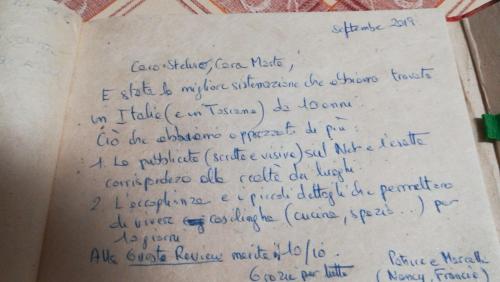 septembre 2019
Caro Stefano, Cara Marta,
E stata la migliore sistemazione che abbiamo trovata
in Italia (e in Toscana) da 10 anni.
Ciò che abbiamo apprezzato di più:
1. La pubblicità (scritta e visiva) sul Net e l'esatta
corrispondeza alla realtà dei luoghi
2. L'accoglienza e i piccoli dettagli che permettono
di vivere casalinghe (cucina, spazio...) per
10 giorni
Alla Guests Review merita il 10/10.
Grazie per tutto
Patrice e Marcelle
(Nancy, Francia)